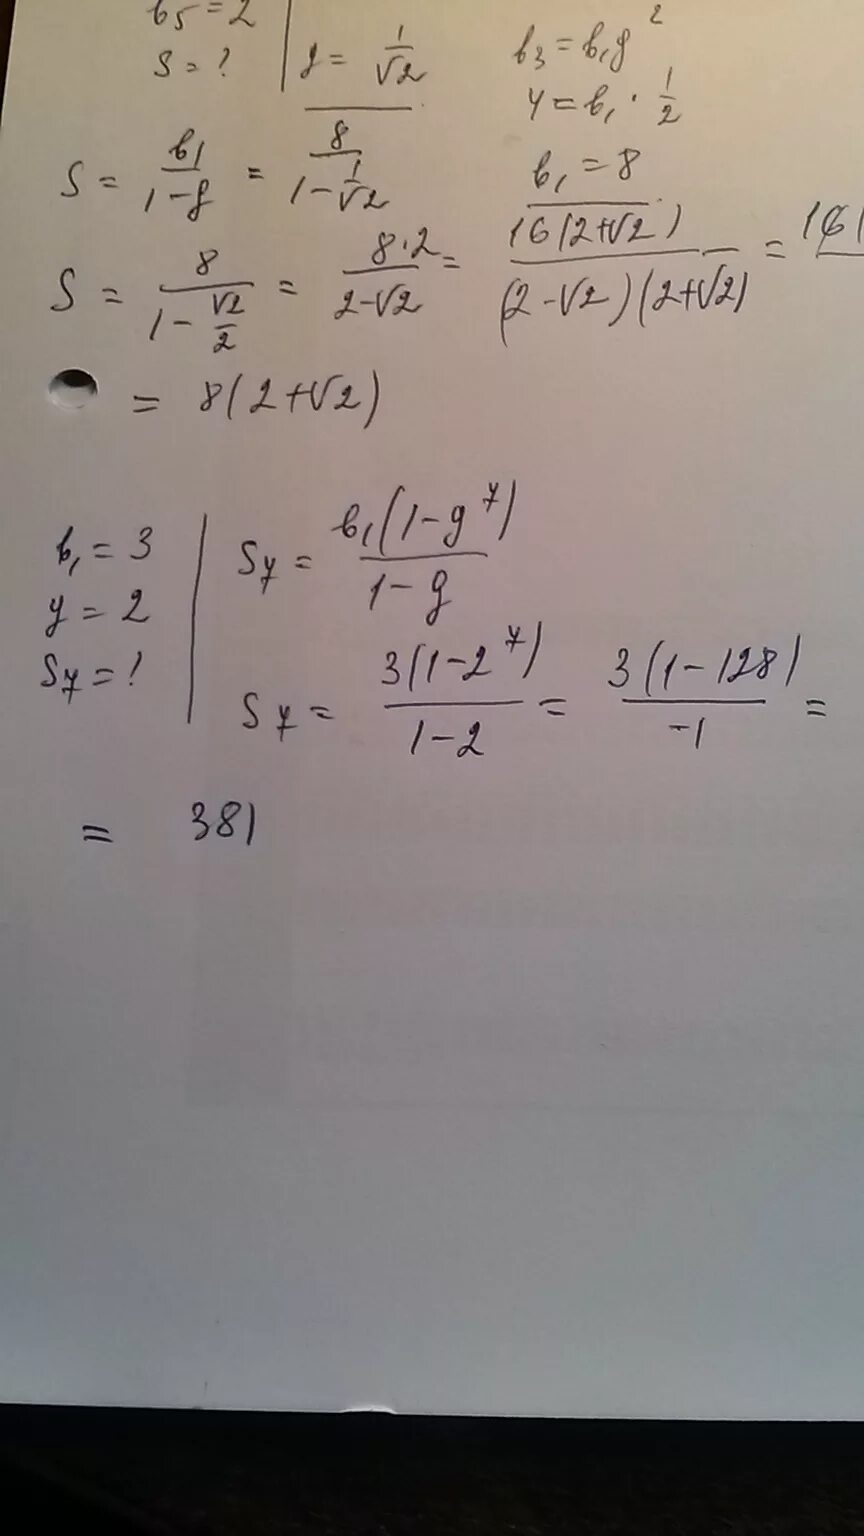 b₅ = 2
S = ?
g = 1/√2
b₃ = b₁g²
4 = b₁ · 1/2
b₁ = 8
S = b₁/(1-g) = 8/(1-1/√2)
S = 8/(1-√2/2) = 8·2/(2-√2) = 16(2+√2)/((2-√2)(2+√2)) = 16(
= 8(2+√2)
b₁ = 3
g = 2
S₇ = ?
S₇ = b₁(1-g⁷)/(1-g)
S₇ = 3(1-2⁷)/(1-2) = 3(1-128)/-1 =
= 381